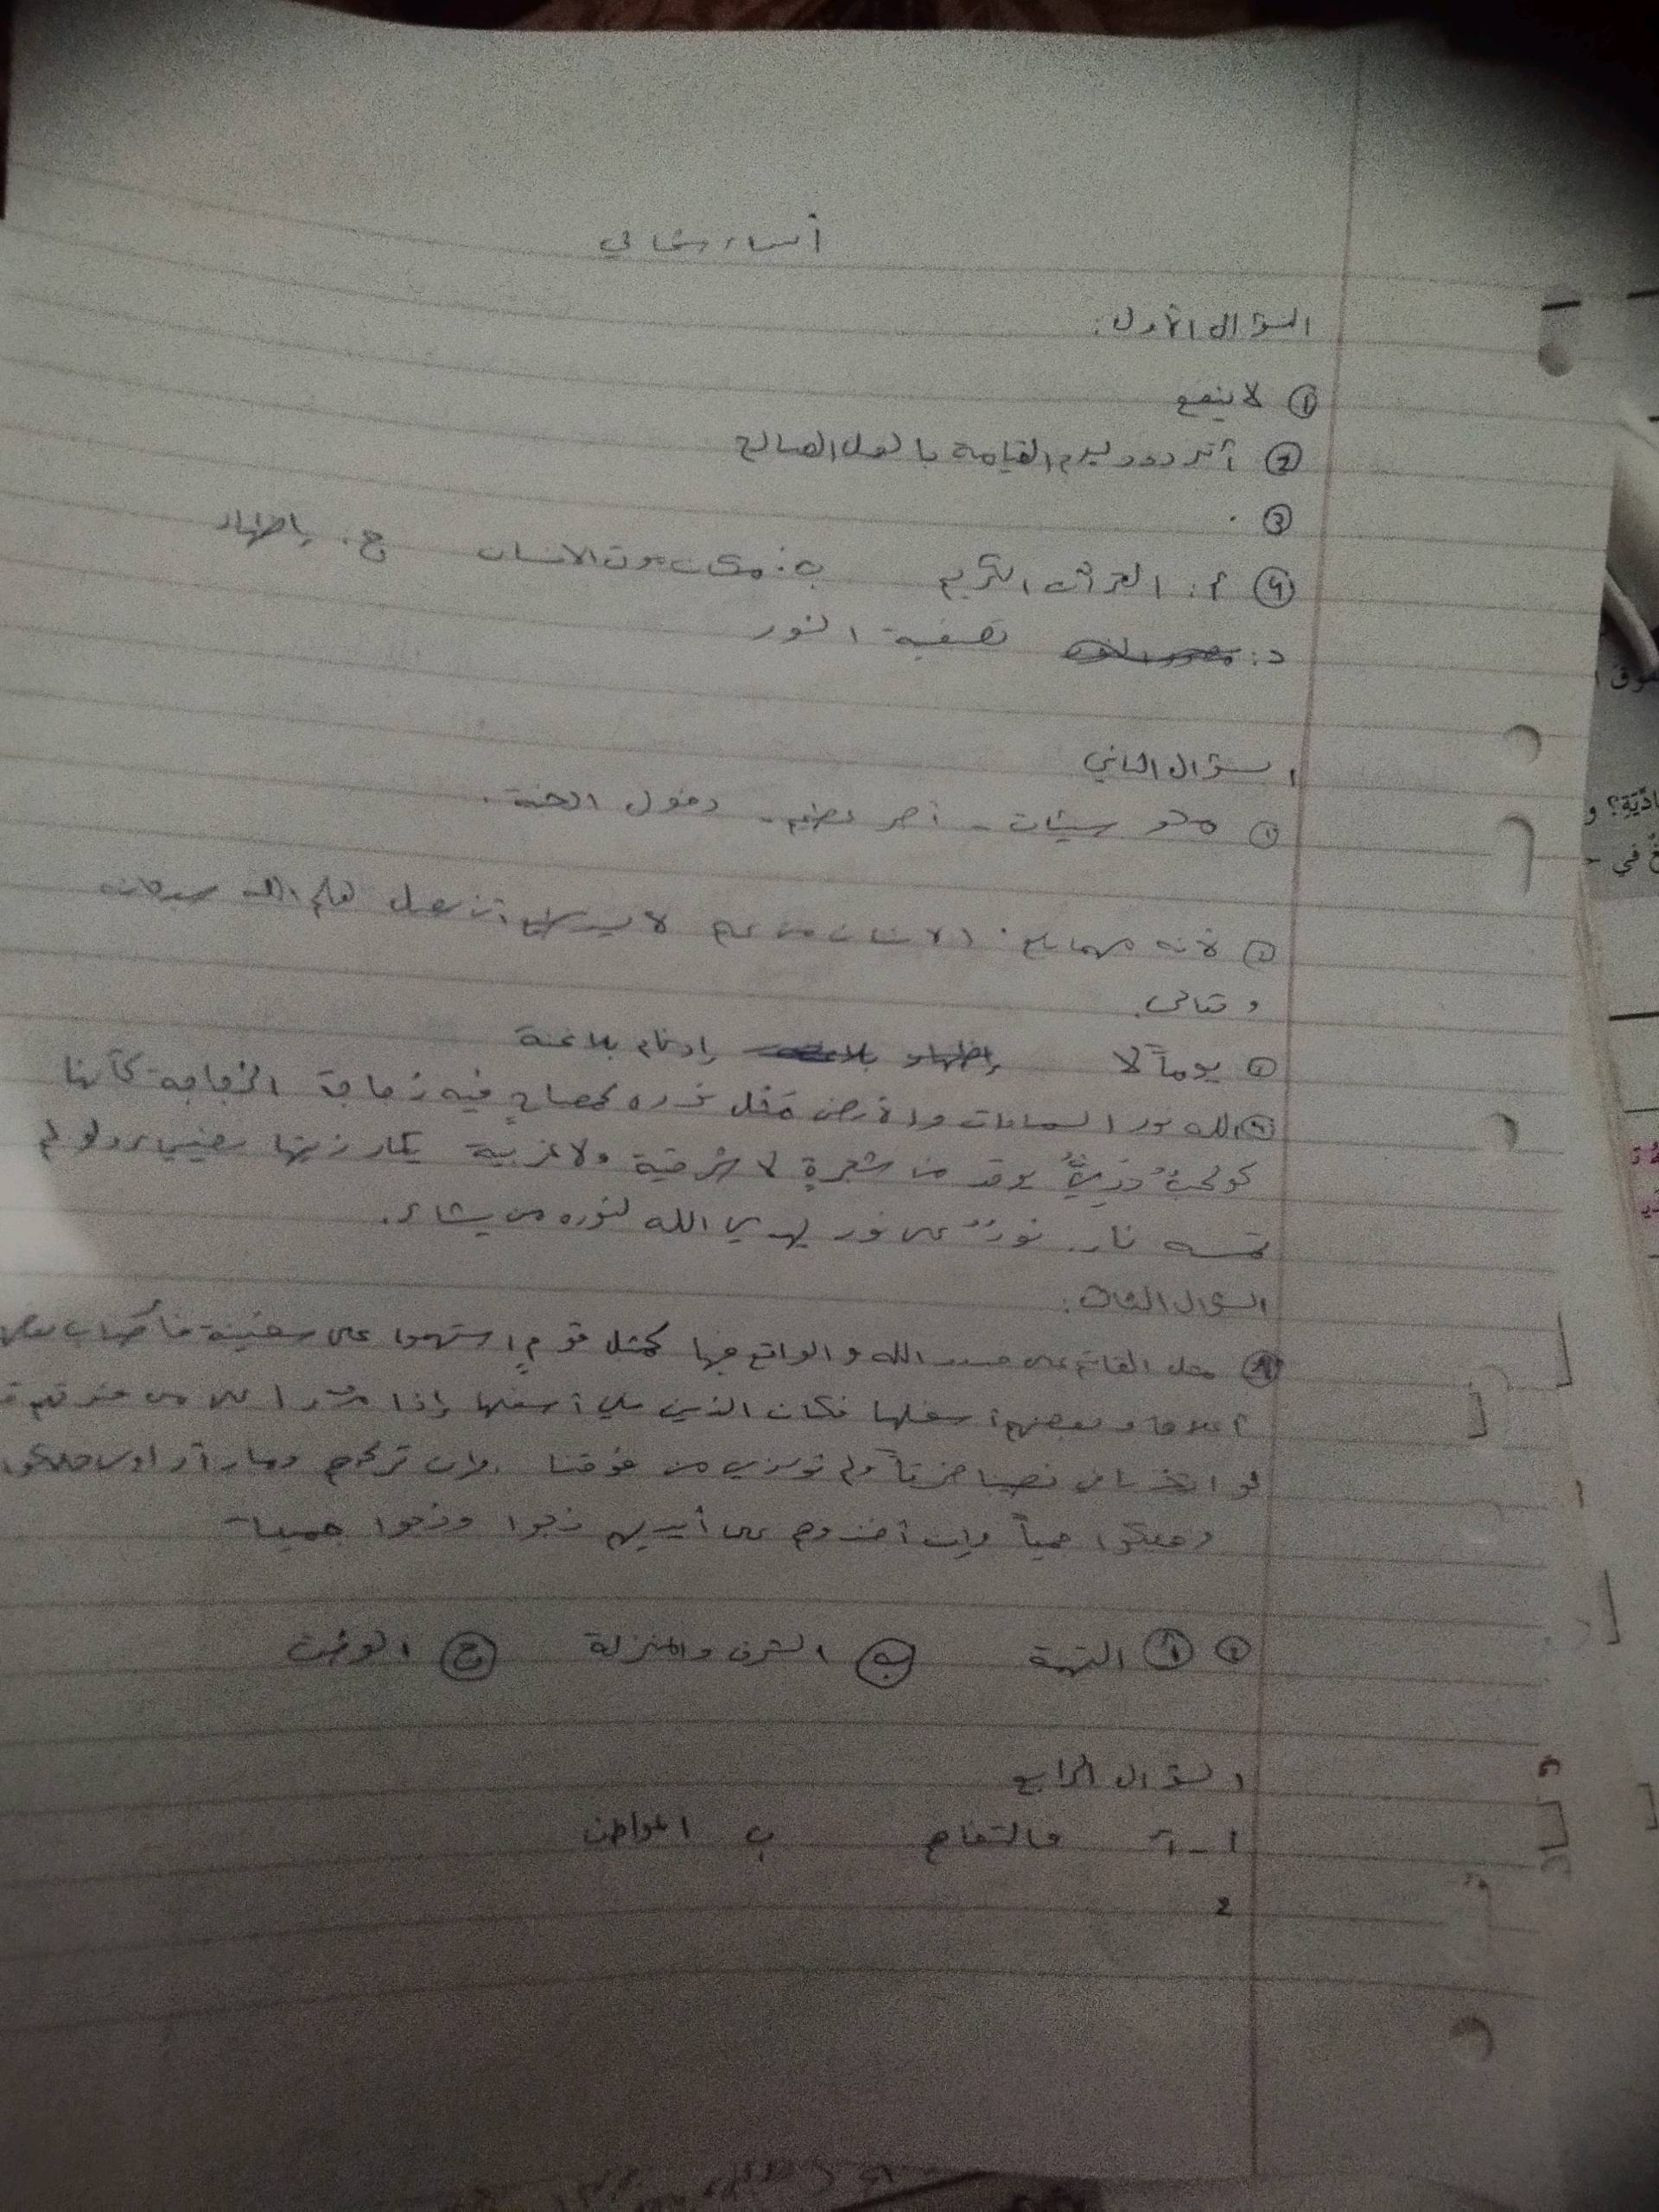 السؤال الأول:
① لا ينفع
② أتزود ليوم القيامة بالعمل الصالح
③ .
④ أ: القرآن الكريم ب: مكان موت الانسان ج: إظهار
د: تصفية النور
السؤال الثاني
① محو سيئات - أجر عظيم - دخول الجنة.
② لأنه مهما بلغ الانسان من علم لا يستطيع أن يصل لعلم الله سبحانه
وتعالى.
③ يوماً لا إدغام بلا غنة
④ الله نور السماوات والأرض مثل نوره كمصباح فيه زجاجة الزجاجة كأنها
كوكبٌ دريٌّ يوقد من شجرةٍ لا شرقية ولا غربية يكاد زيتها يضيىء ولو لم
تمسه نار. نورٌ على نور يهدي الله لنوره من يشاء.
السؤال الثالث:
① مثل القائم على حدود الله والواقع فيها كمثل قومٍ استهموا على سفينة فأصاب بعضهم
أعلاها وبعضهم أسفلها فكان الذين في أسفلها إذا مروا على من فوقهم
لو انخرقنا في نصيبنا خرقاً ولم نؤذي من فوقنا. وإن تركوهم وما أرادوا هلكوا
وهلكوا جميعاً وإن أخذوهم على أيديهم نجوا ونجوا جميعا
② أ التهمة ب الشرف والمنزلة ج
السؤال الرابع
1 - أ ب المواطن
2